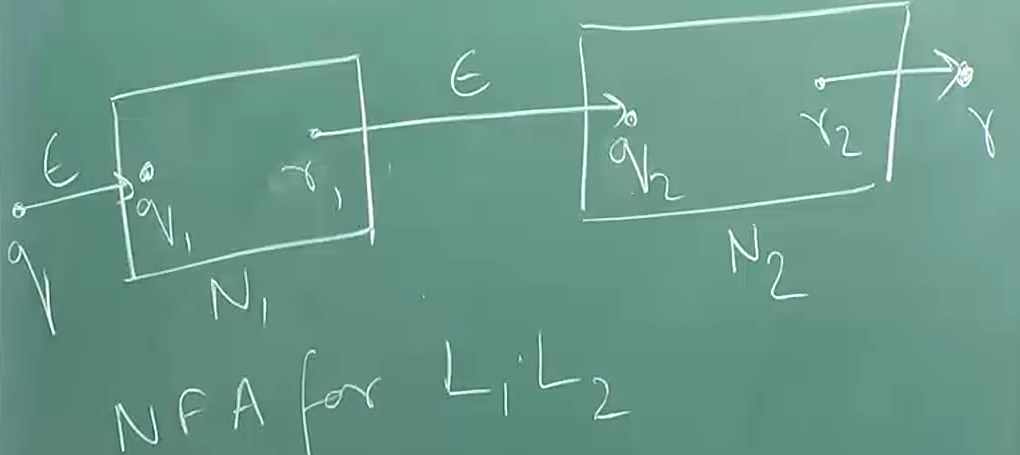 ϵ
ϵ
q
q₁
r₁
q₂
r₂
r
N₁
N₂
NFA for L₁·L₂